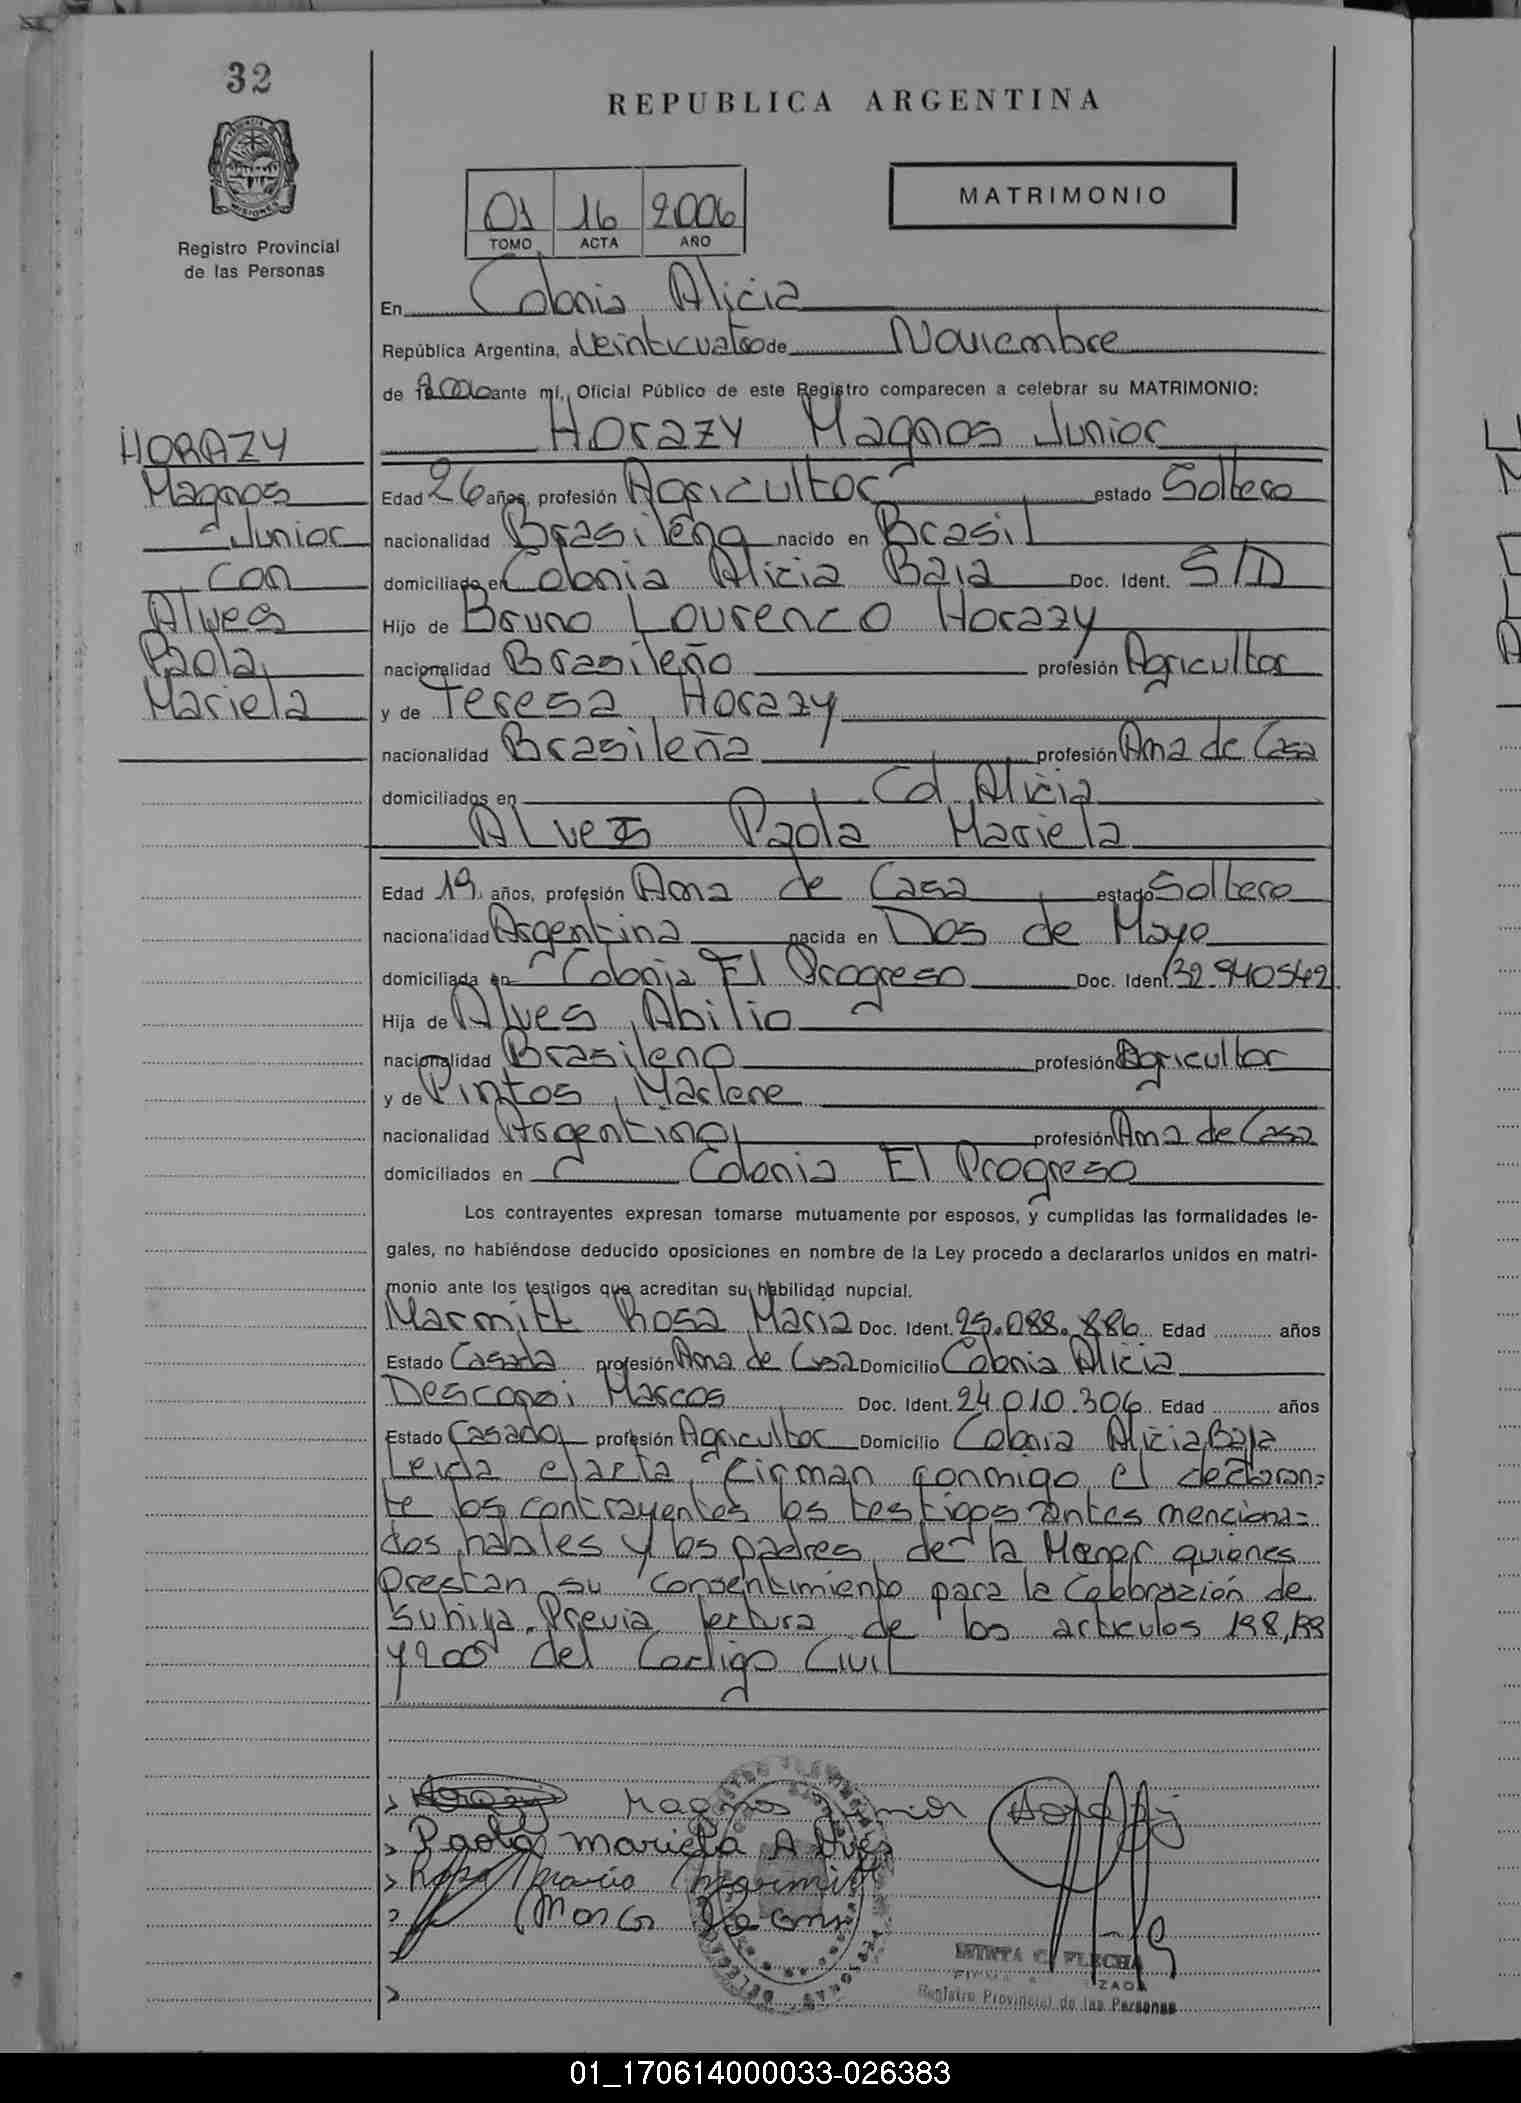 32
REPUBLICA ARGENTINA
MISIONES
Registro Provincial
de las Personas
MATRIMONIO
01 16 2006
TOMO ACTA AÑO
En Colonia Alicia
República Argentina, a Veinticuatro de Noviembre
de 2006 ante mí, Oficial Público de este Registro comparecen a celebrar su MATRIMONIO:
Horazy Magnos Junior
HORAZY
Magnos
Junior
con
Alves
Paola
Mariela
Edad 26 años, profesión Agricultor estado Soltero
nacionalidad Brasileña nacido en Brasil
domiciliado en Colonia Alicia Baja Doc. Ident. S/D
Hijo de Bruno Lourenco Horazy
nacionalidad Brasileño profesión Agricultor
y de Teresa Horazy
nacionalidad Brasileña profesión Ama de Casa
domiciliados en Col Alicia
Alves Paola Mariela
Edad 19 años, profesión Ama de Casa estado Soltera
nacionalidad Argentina nacida en Dos de Mayo
domiciliada en Colonia El Progreso Doc. Ident. 32.940542
Hija de Alves, Abilio
nacionalidad Brasileno profesión Agricultor
y de Pintos, Marlene
nacionalidad Argentina profesión Ama de Casa
domiciliados en Colonia El Progreso
Los contrayentes expresan tomarse mutuamente por esposos, y cumplidas las formalidades le-
gales, no habiéndose deducido oposiciones en nombre de la Ley procedo a declararlos unidos en matri-
monio ante los testigos que acreditan su habilidad nupcial.
Marmitt Rosa Maria Doc. Ident. 25.088.886 Edad años
Estado Casada profesión Ama de Casa Domicilio Colonia Alicia
Marcos Doc. Ident. 24.010.306 Edad años
Estado Casado profesión Agricultor Domicilio Colonia Alicia Baja
Leida el acta, firman conmigo el declaran=
te los contrayentes los testigos antes menciona=
dos habiles y los padres de la Menor quienes
prestan su consentimiento para la Celebración de
su hija. Previa lectura de los articulos 198, 199
y 200 del Codigo Civil
Magnos Junior Horazy
Paola Mariela Alves
Rosa Maria Marmitt
Marcos
MIRTA C. FLECHA
Registro Provincial de las Personas
01_170614000033-026383